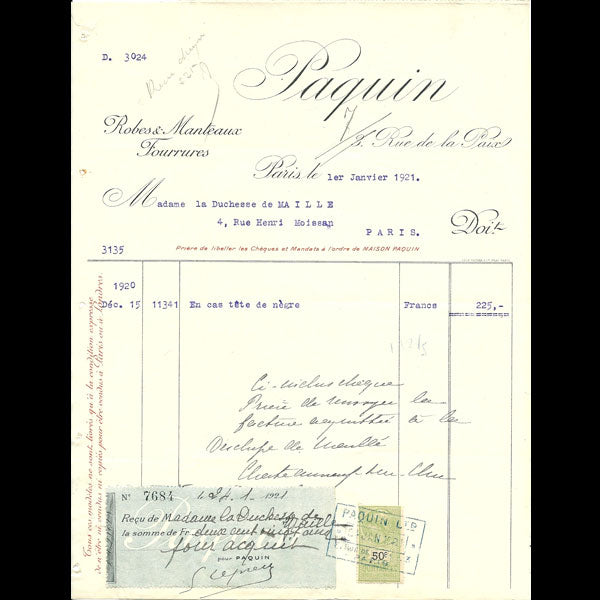 D. 3024
Paquin
Robes & Manteaux
Fourrures
3, Rue de la Paix
Paris, le 1er Janvier 1921.
Madame la Duchesse de MAILLE
4, Rue Henri Moissan
PARIS.
Doit
3135
Prière de libeller les Chèques et Mandats à l'ordre de MAISON PAQUIN
1920
Déc. 15 11341 En cas tête de nègre Francs 225,-
Tous ces modèles ne sont livrés qu'à la condition expresse
de n'être ni vendus ni copiés pour être vendus à Paris ou à Londres.
Ci-inclus chèque
Prière de renvoyer la
facture acquittée à la
Duchesse de Maillé
Chateauneuf-sur-Cher
No 7684 le 24.1.1921
Reçu de Madame la Duchesse de Maillé
la somme de Fr. deux cent vingt cinq
pour acquit
POUR PAQUIN
PAQUIN LTD
50c